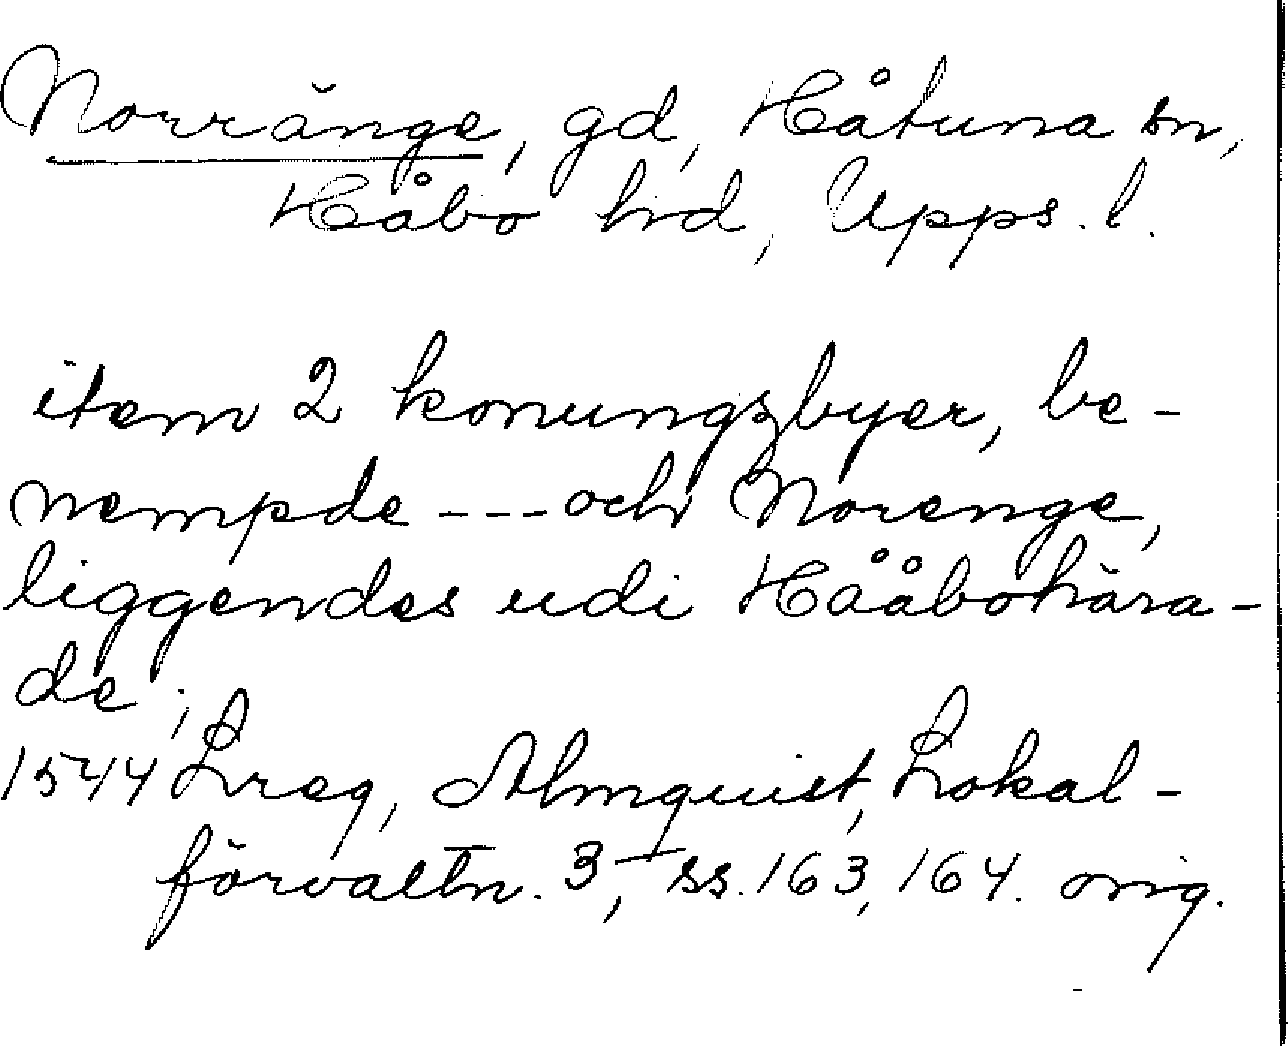 Norränge, gd, Håtuna sn,
Håbo hd, Upps. l.
item 2 konungzbyer, be-
nempde --- och Norenge,
liggendes udi Hååbohära-
de;
1544 Lreg, Almquist, Lokal-
förvaltn. 3, ss. 163, 164. orig.